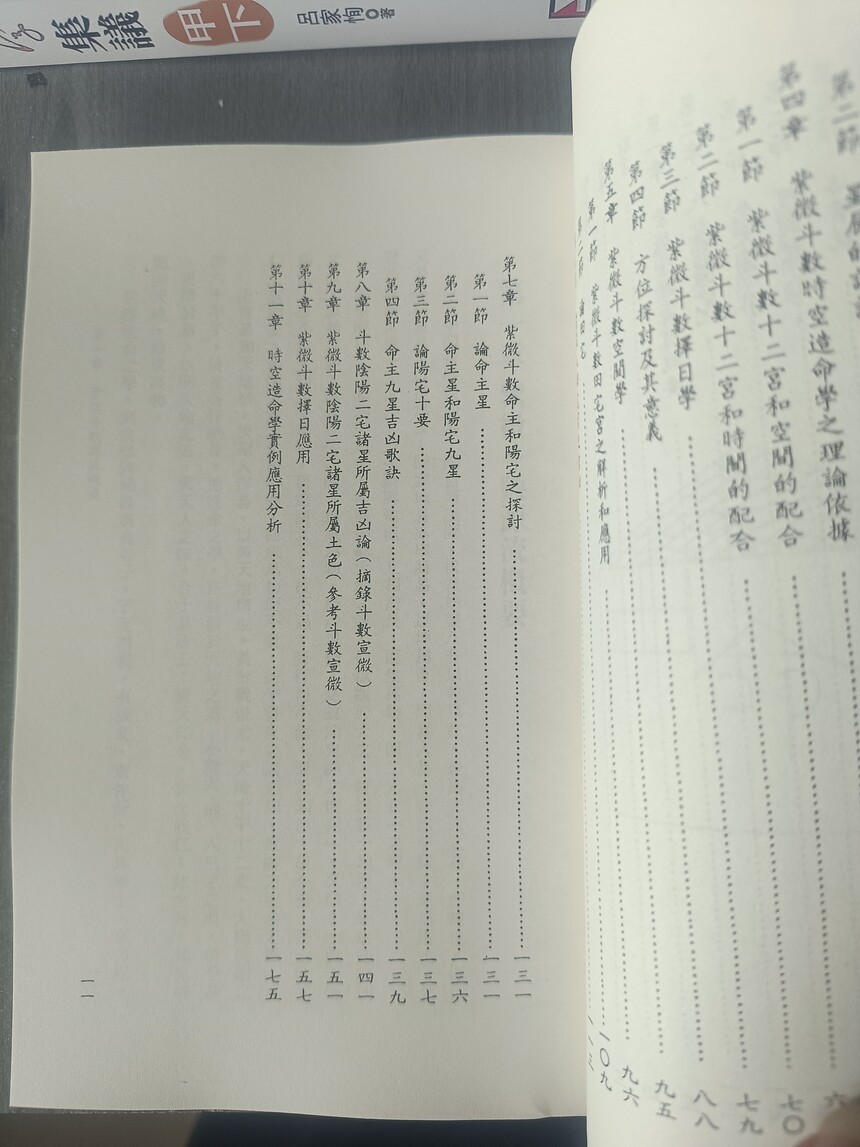 集議
甲
下
呂家恂◎著
第二節
第四章 紫微斗數時空造命學之理論依據……七〇
第一節 紫微斗數十二宮和空間的配合……七九
第二節 紫微斗數十二宮和時間的配合……八八
第三節 紫微斗數擇日學……九五
第四節 方位探討及其意義……九六
第五章 紫微斗數空間學……一〇九
第一節 紫微斗數田宅宮之解析和應用
第七章 紫微斗數命主和陽宅之探討……一三一
第一節 論命主星……一三一
第二節 命主星和陽宅九星……一三六
第三節 論陽宅十要……一三七
第四節 命主九星吉凶歌訣……一三九
第八章 斗數陰陽二宅諸星所屬吉凶論（摘錄斗數宣微）……一四一
第九章 紫微斗數陰陽二宅諸星所屬土色（參考斗數宣微）……一五一
第十章 紫微斗數擇日應用……一五七
第十一章 時空造命學實例應用分析……一七五
一一